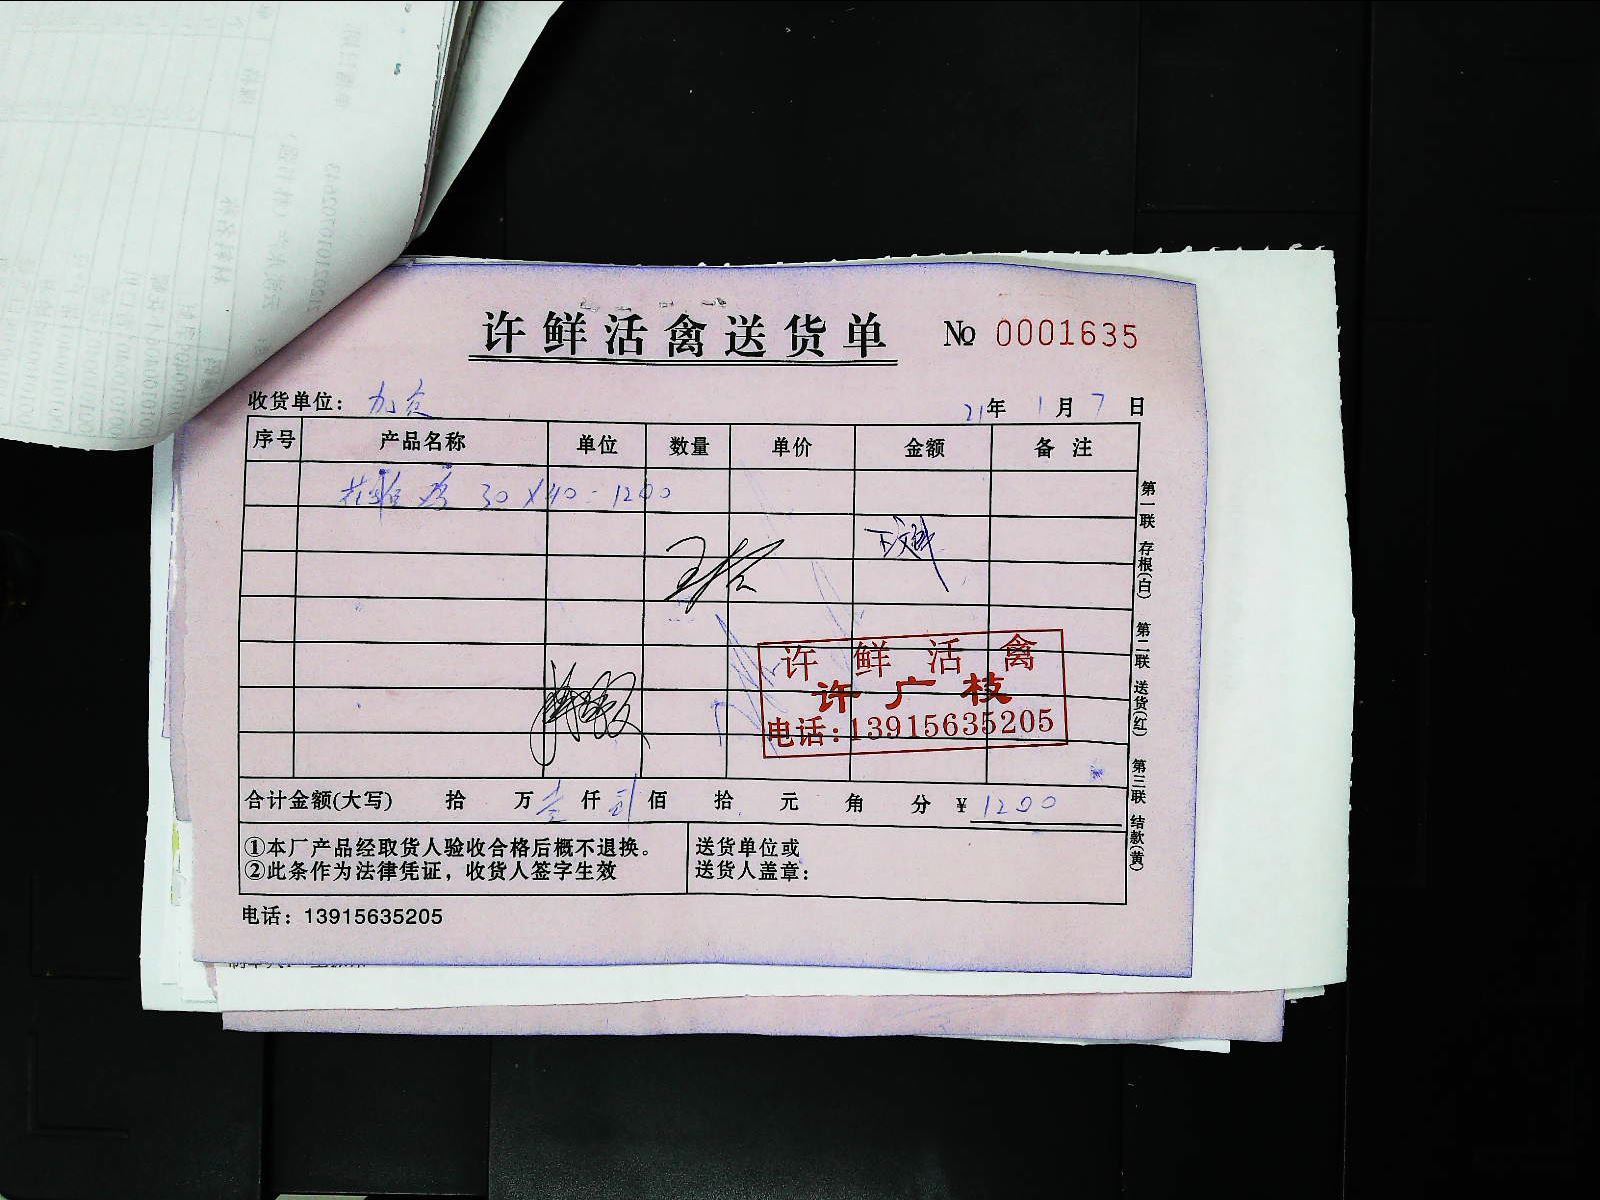 许鲜活禽送货单 № 0001635
收货单位： 21年 1月 7日
序号 产品名称 单位 数量 单价 金额 备 注
30 X 40 = 1200
许鲜活禽
许广枝
电话:13915635205
合计金额(大写) 拾 万 壹 仟 贰 佰 拾 元 角 分 ￥1200
①本厂产品经取货人验收合格后概不退换。
②此条作为法律凭证，收货人签字生效
送货单位或
送货人盖章：
电话：13915635205
第一联 存根(白) 第二联 送货(红) 第三联 结款(黄)